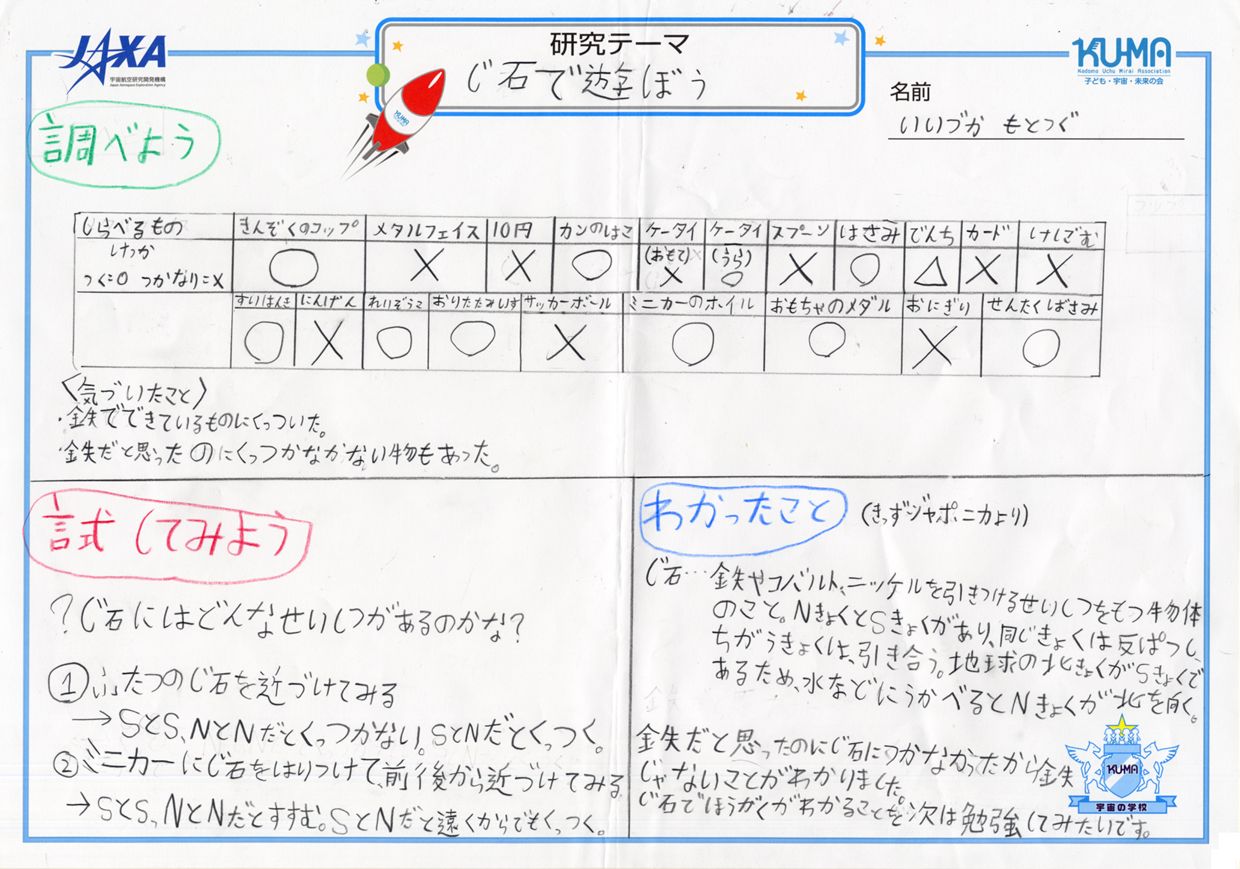 JAXA
宇宙航空研究開発機構
Japan Aerospace Exploration Agency
研究テーマ
じ石で遊ぼう
KU-MA
Kodomo Uchu Mirai Association
子ども・宇宙・未来の会
名前
いいづか もとつぐ
KU-MA
調べよう
しらべるもの きんぞくのコップ メタルフェイス 10円 カンのはこ ケータイ ケータイ スプーン はさみ でんち カード けしごむ
けっか (おもて) (うら)
つく=○ つかなり=× ○ × × ○ × ○ × ○ △ × ×
すいはんき にんげん れいぞうこ おりたたみいす サッカーボール ミニカーのホイル おもちゃのメダル おにぎり せんたくばさみ
○ × ○ ○ × ○ ○ × ○
〈気づいたこと〉
・鉄でできているものにくっついた。
・鉄だと思ったのにくっつかなかない物もあった。
試してみよう
?じ石にはどんなせいしつがあるのかな?
①ふたつのじ石を近づけてみる
→SとS、NとNだとくっつかない。SとNだとくっつく。
②ミニカーにじ石をはりつけて、前後から近づけてみる
→SとS、NとNだとすすむ。SとNだと遠くからでもくっつく。
わかったこと (きっずジャポニカより)
じ石…鉄やコバルト、ニッケルを引きつけるせいしつをもつ物体
のこと。NきょくとSきょくがあり、同じきょくは反ぱつし、
ちがうきょくは、引き合う。地球の北きょくがSきょくで
あるため、水などにうかべるとNきょくが北を向く。
鉄だと思ったのにじ石につかなかったから鉄
じゃないことがわかりました。
じ石でほうがくがわかることを次は勉強してみたいです。
KU-MA
宇宙の学校